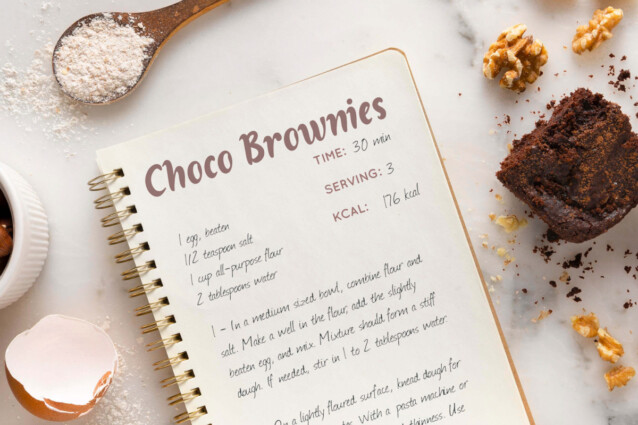 Choco Brownies
TIME: 30 min
SERVING: 3
KCAL: 176 kcal
1 egg, beaten
1/2 teaspoon salt
1 cup all-purpose flour
2 tablespoons water
1 - In a medium sized bowl, combine flour and
salt. Make a well in the flour, add the slightly
beaten egg, and mix. Mixture should form a stiff
dough. If needed, stir in 1 to 2 tablespoons water.
On a lightly floured surface, knead dough for
With a pasta machine or
thinness. Use